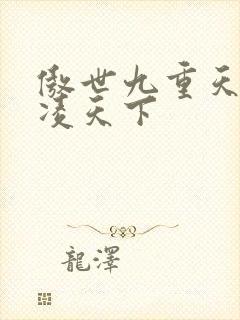 傲世九重天
凌天下
龍澤